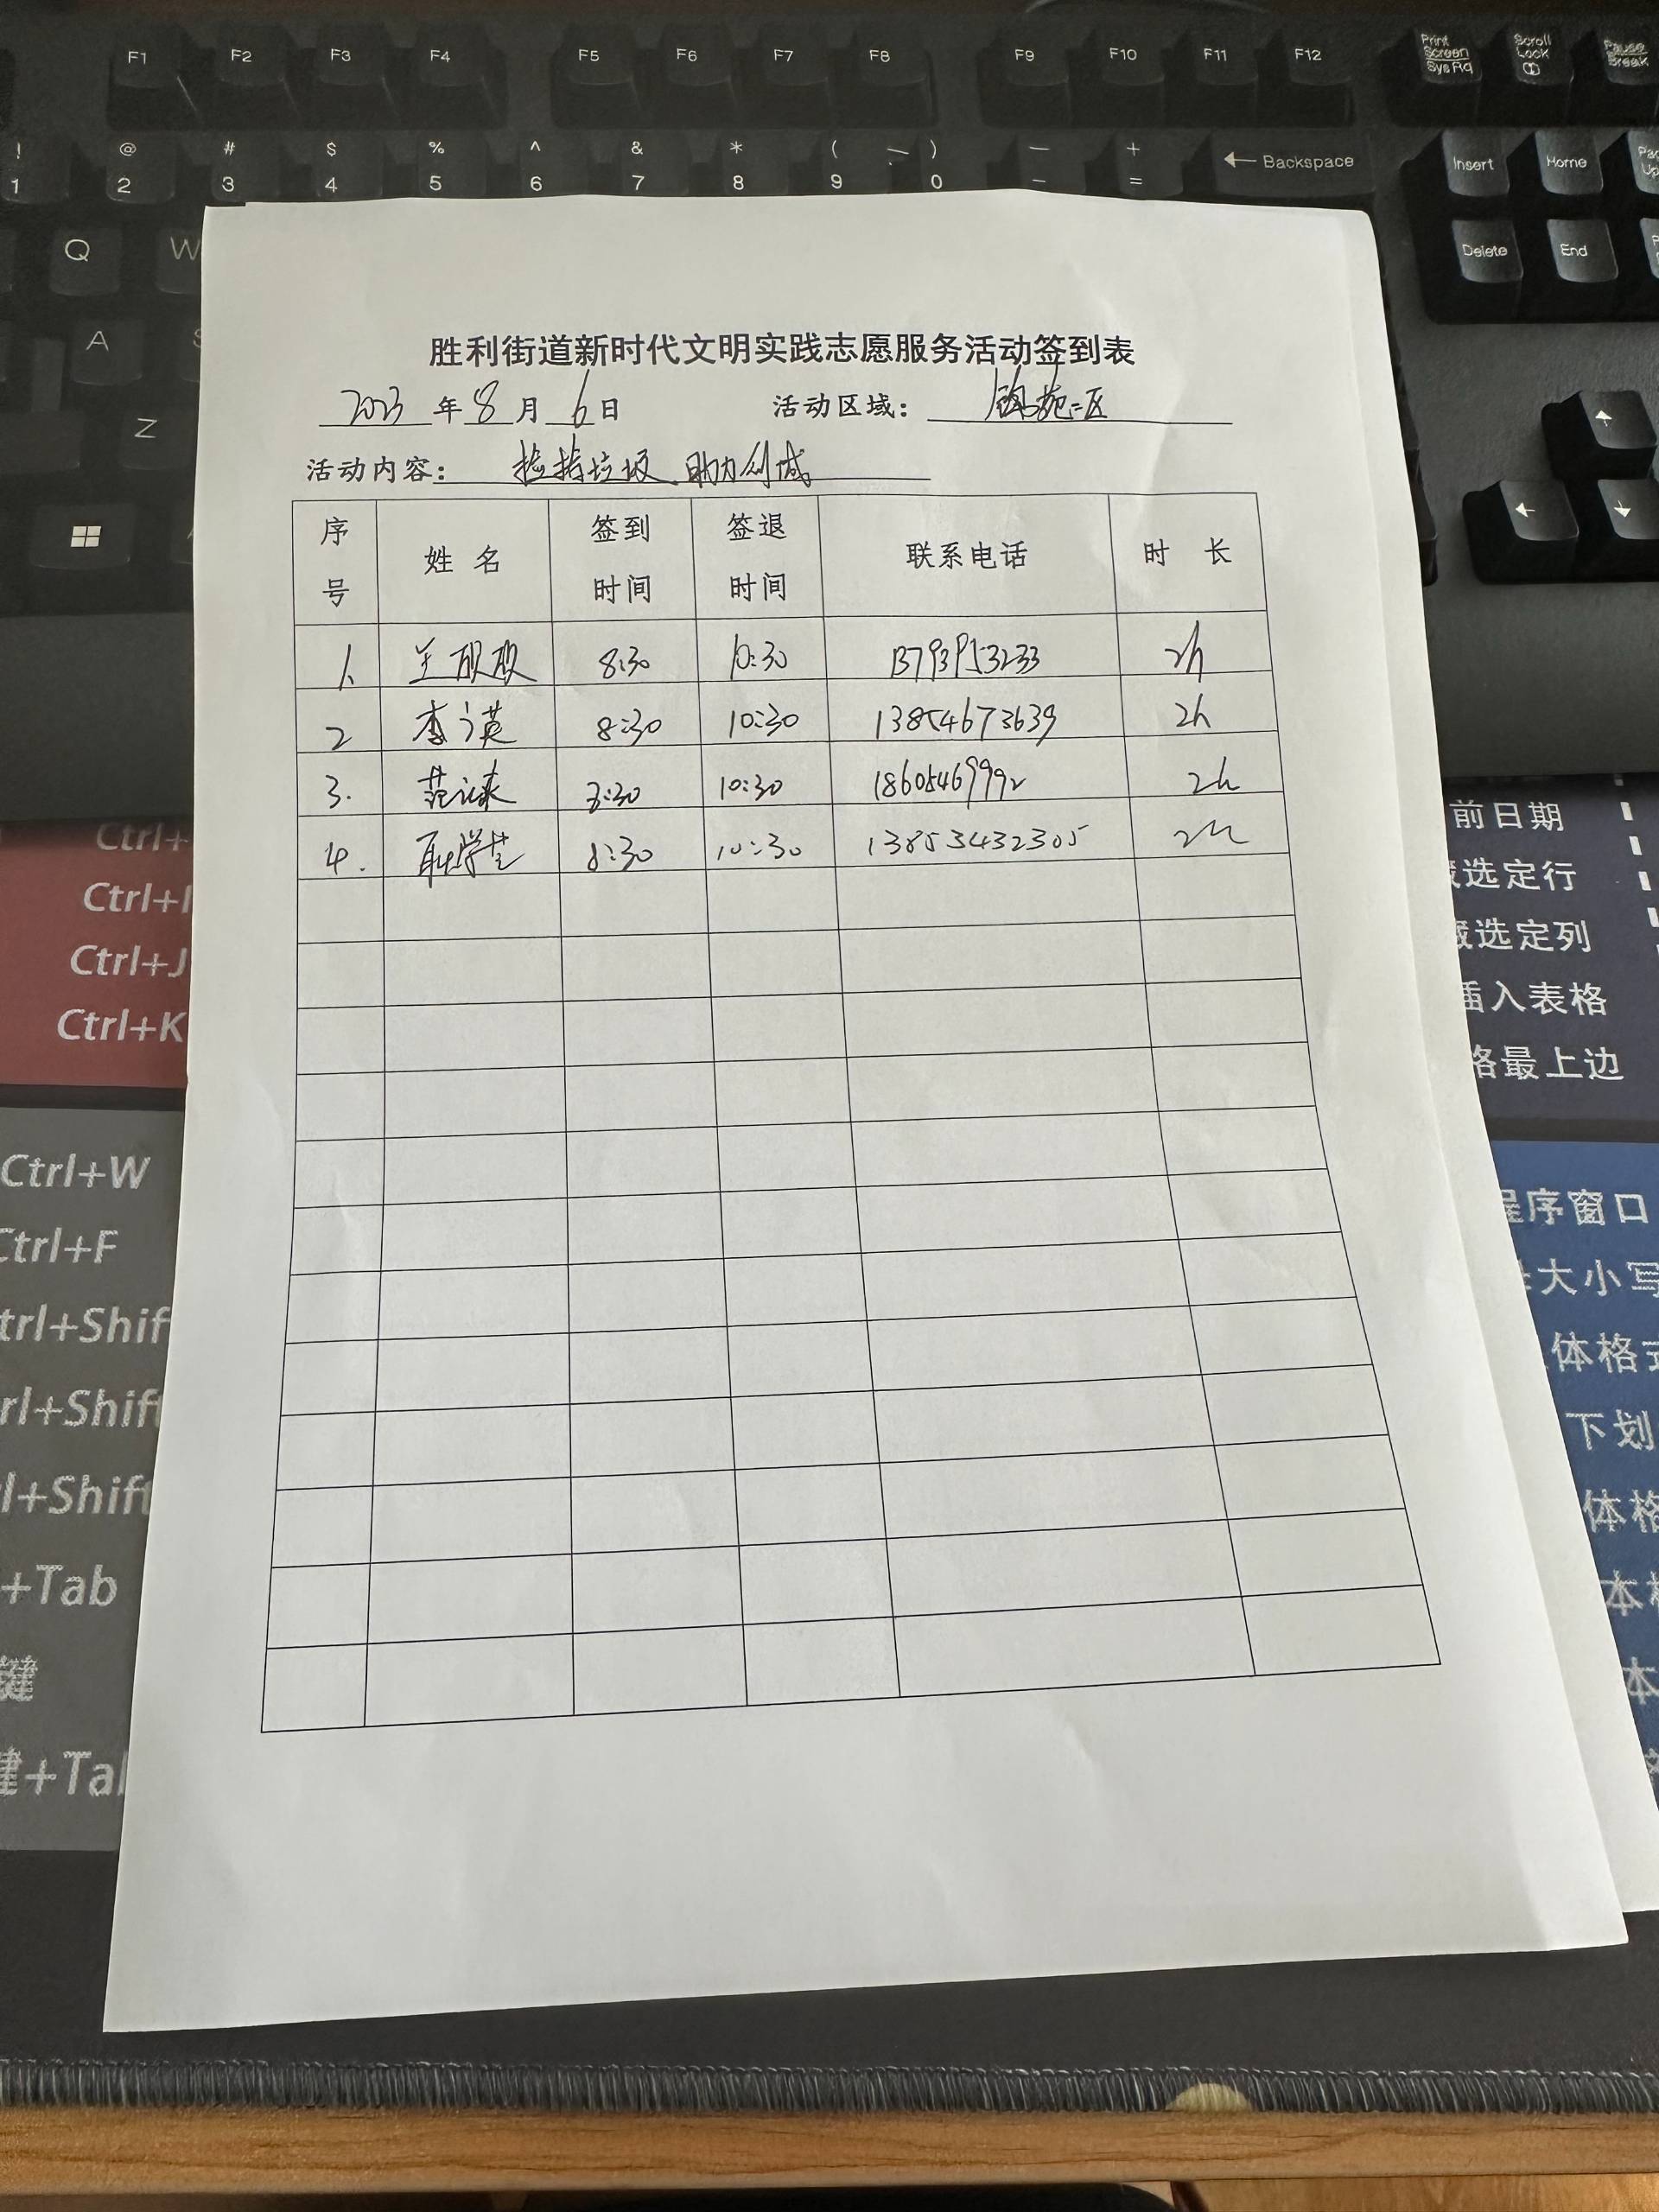 F1 F2 F3 F4 F5 F6 F7 F8 F9 F10 F11 F12 Print Screen SysRq Scroll Lock Pause Break
! @ # $ % ^ & * ( ) — +
1 2 3 4 5 6 7 8 9 0 - = ← Backspace Insert Home
Q W Delete End
A
Z
胜利街道新时代文明实践志愿服务活动签到表
2023 年 8 月 6 日 活动区域: 二区
活动内容: 捡拾垃圾 助力创城
序号 姓名 签到时间 签退时间 联系电话 时长
1. 8:30 10:30 13793953233 2h
2 李 英 8:30 10:30 13854673639 2h
3. 范 8:30 10:30 18605469992 2h
4. 耿学芝 8:30 10:30 13853432305 2h
Ctrl+
Ctrl+I
Ctrl+J
Ctrl+K
Ctrl+W
Ctrl+F
Ctrl+Shif
rl+Shift
l+Shift
+Tab
键
键+Tab
前日期
藏选定行
藏选定列
插入表格
格最上边
程序窗口
大小写
体格式
下划
体格
本格
本